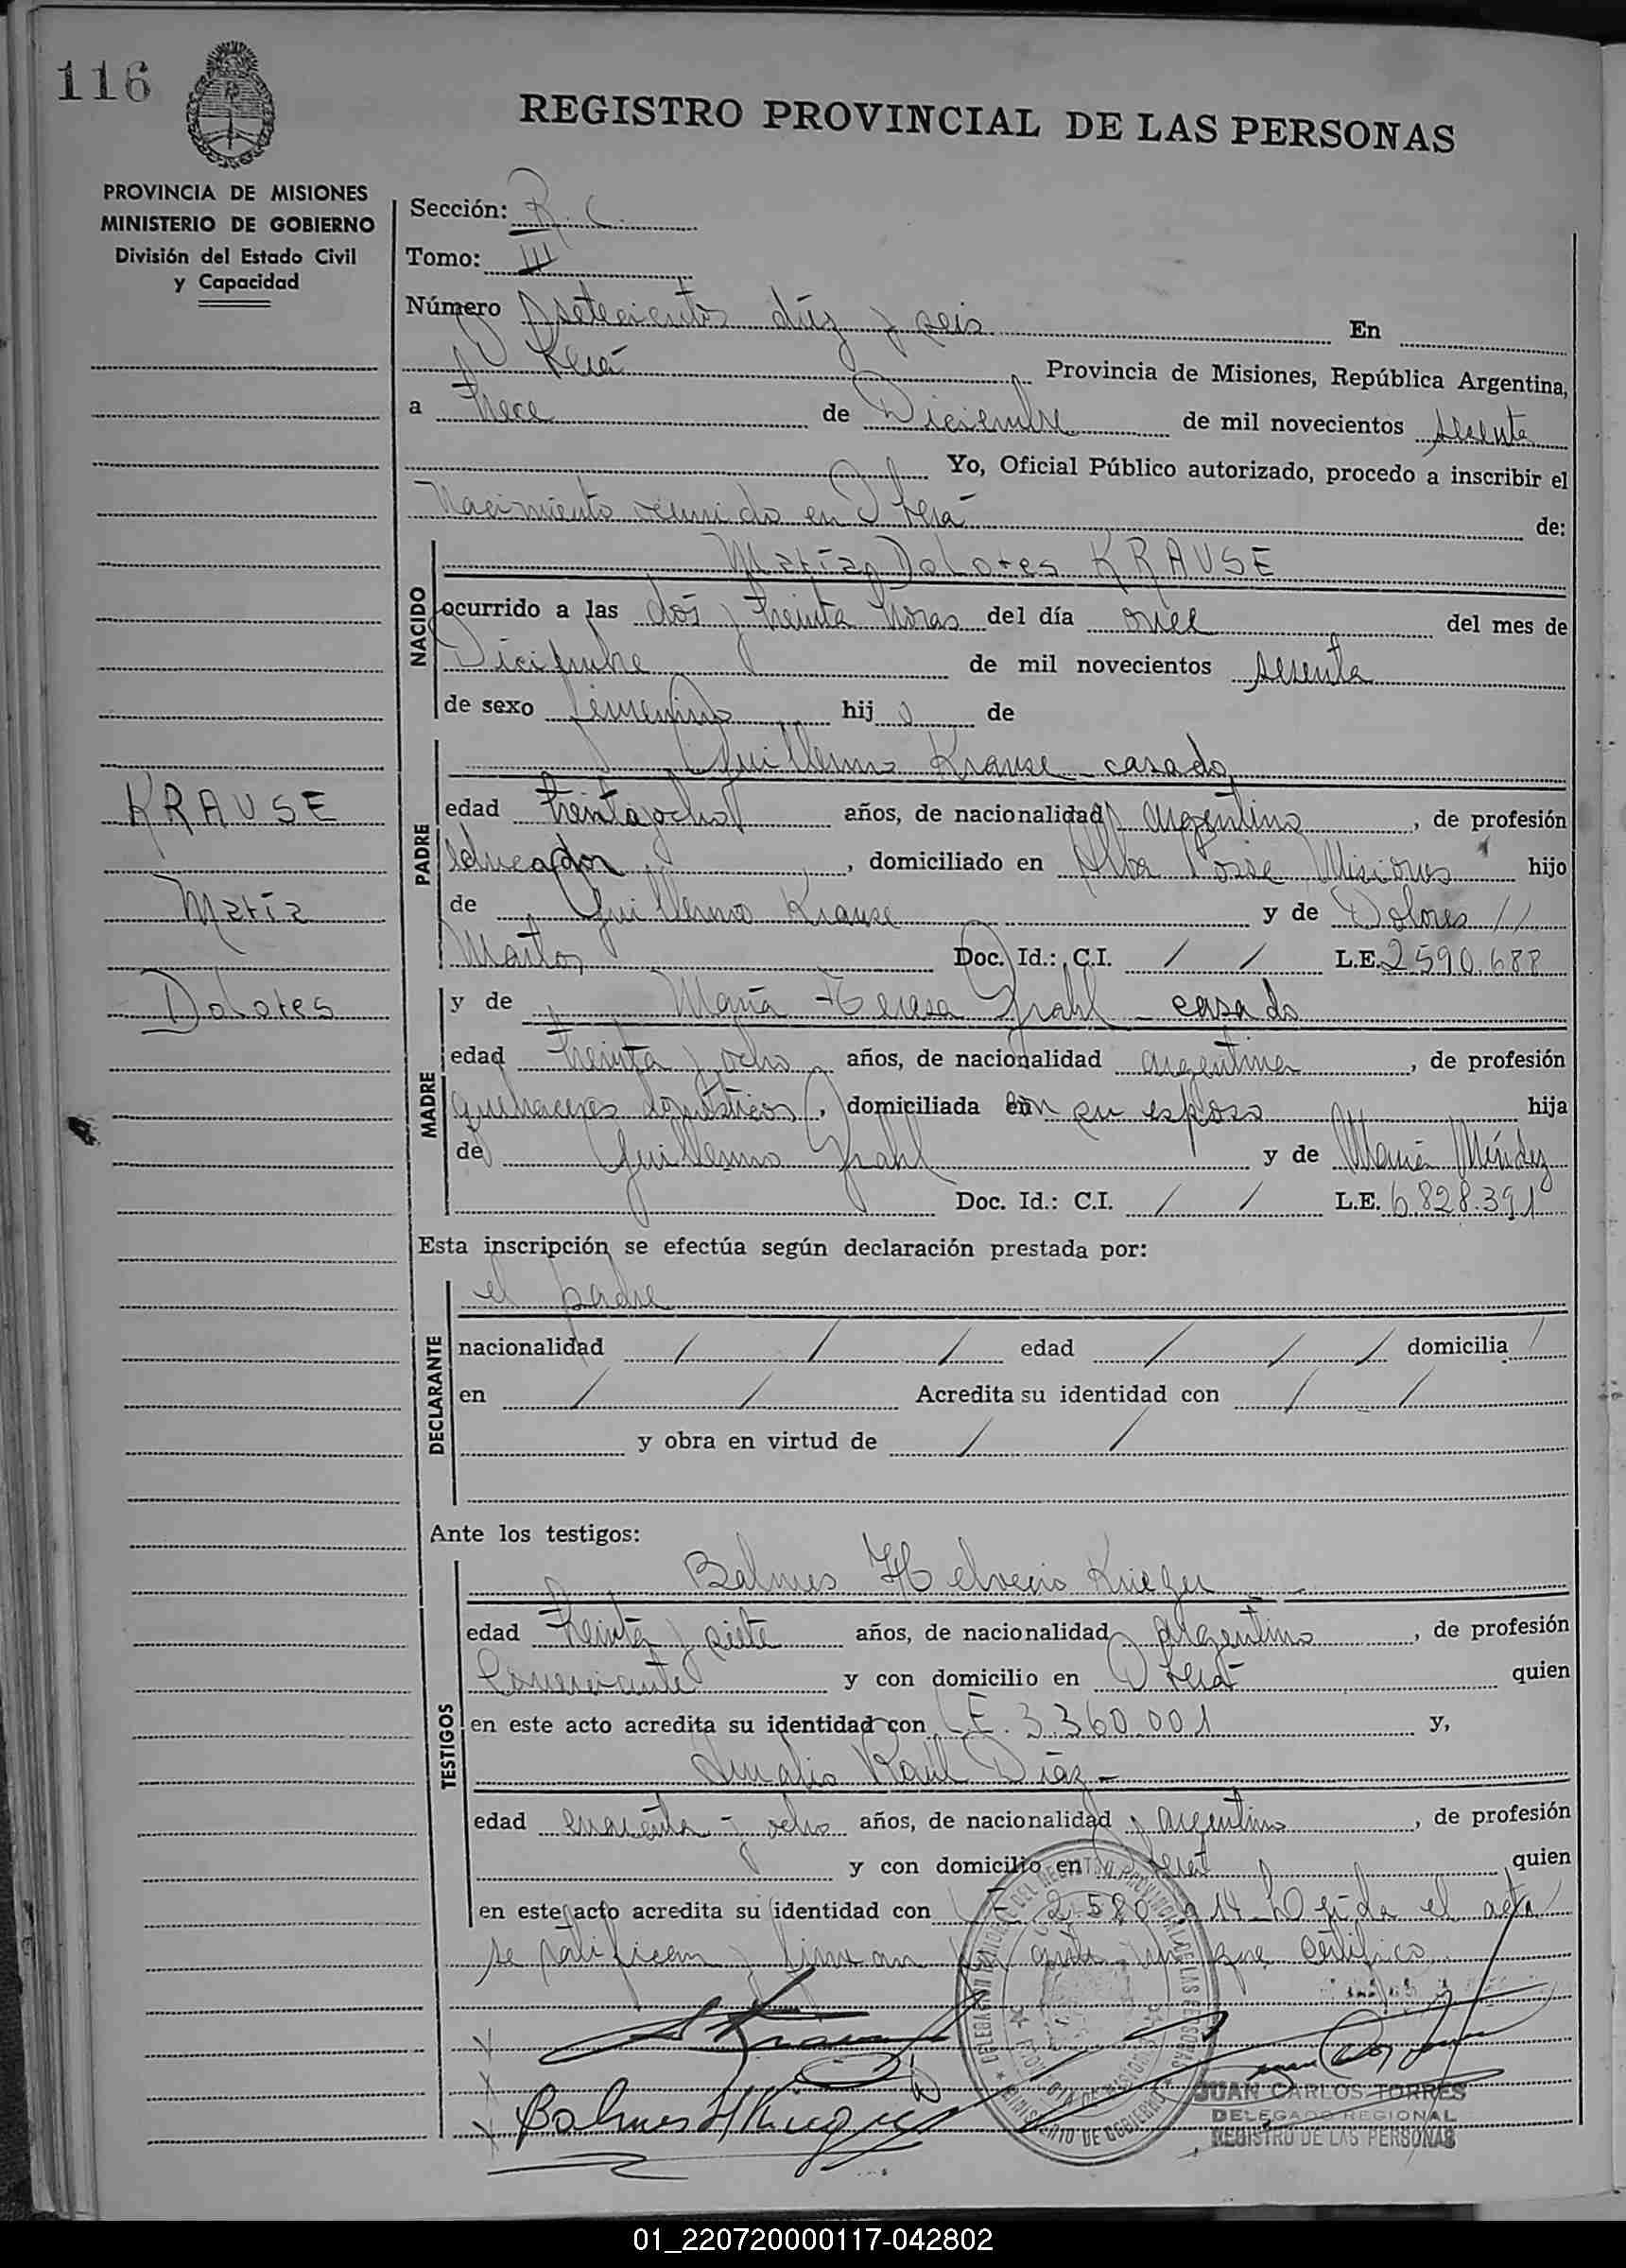 116
REGISTRO PROVINCIAL DE LAS PERSONAS
PROVINCIA DE MISIONES
MINISTERIO DE GOBIERNO
División del Estado Civil
y Capacidad
Sección: R. C.
Tomo: III
Número setecientos diez y seis En
Oberá Provincia de Misiones, República Argentina,
a trece de Diciembre de mil novecientos sesenta
Yo, Oficial Público autorizado, procedo a inscribir el
Nacimiento ocurrido en Oberá de:
NACIDO
María Dolores KRAUSE
ocurrido a las dos y treinta horas del día once del mes de
Diciembre de mil novecientos sesenta
de sexo femenino hija de
PADRE
Guillermo Krause - casado
edad treinta y ocho años, de nacionalidad argentino, de profesión
educador, domiciliado en Alba Posse Misiones hijo
de Guillermo Krause y de Dolores //
Martos Doc. Id.: C.I. / / L.E. 2.590.688
KRAUSE
María
Dolores
MADRE
y de María Teresa Grahl - casada
edad treinta y ocho años, de nacionalidad argentina, de profesión
quehaceres domésticos, domiciliada con su esposo hija
de Guillermo Grahl y de María Méndez
Doc. Id.: C.I. / / L.E. 6.828.391
Esta inscripción se efectúa según declaración prestada por:
DECLARANTE
el padre
nacionalidad / / / edad / / / domicilia /
en / / Acredita su identidad con / /
y obra en virtud de / /
Ante los testigos:
TESTIGOS
Balmes Helvecio Krieger
edad treinta y siete años, de nacionalidad argentino, de profesión
Comerciante y con domicilio en Oberá quien
en este acto acredita su identidad con L.E. 3.360.001 y,
Raúl Díaz -
edad cuarenta y ocho años, de nacionalidad argentino, de profesión
y con domicilio en Oberá quien
en este acto acredita su identidad con L.E. 2.580.914 - Leída el acta
se ratifican y firman por ante mí que certifico
Balmes H Krieger
DELEGACION REGIONAL DEL REGISTRO PROVINCIAL DE LAS PERSONAS
MINISTERIO DE GOBIERNO
PROVINCIA DE MISIONES
JUAN CARLOS TORRES
DELEGADO REGIONAL
REGISTRO DE LAS PERSONAS
01_220720000117-042802